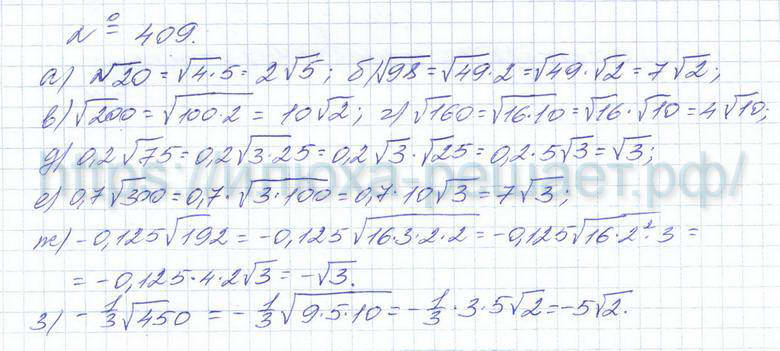 № 409.
а) √20 = √4·5 = 2√5; б) √98 = √49·2 = √49·√2 = 7√2;
в) √200 = √100·2 = 10√2; г) √160 = √16·10 = √16·√10 = 4√10;
д) 0,2√75 = 0,2√3·25 = 0,2√3·√25 = 0,2·5√3 = √3;
https://индюха-решает.рф/
е) 0,7√300 = 0,7·√3·100 = 0,7·10√3 = 7√3;
ж) -0,125√192 = -0,125√16·3·2·2 = -0,125√16·2²·3 =
= -0,125·4·2√3 = -√3.
з) -1/3√450 = -1/3√9·5·10 = -1/3·3·5√2 = -5√2.